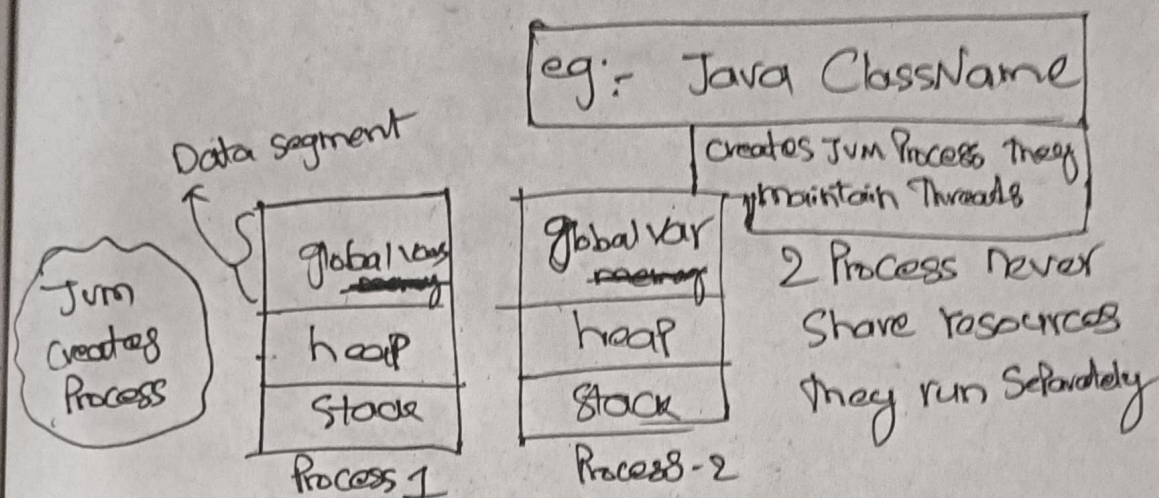 eg:- Java ClassName
creates JVM Process they
maintain Threads
Data segment
global vars
heap
Stack
Process 1
global var
heap
Stack
Process-2
Jvm
creates
Process
2 Process never
Share resources
they run Separately